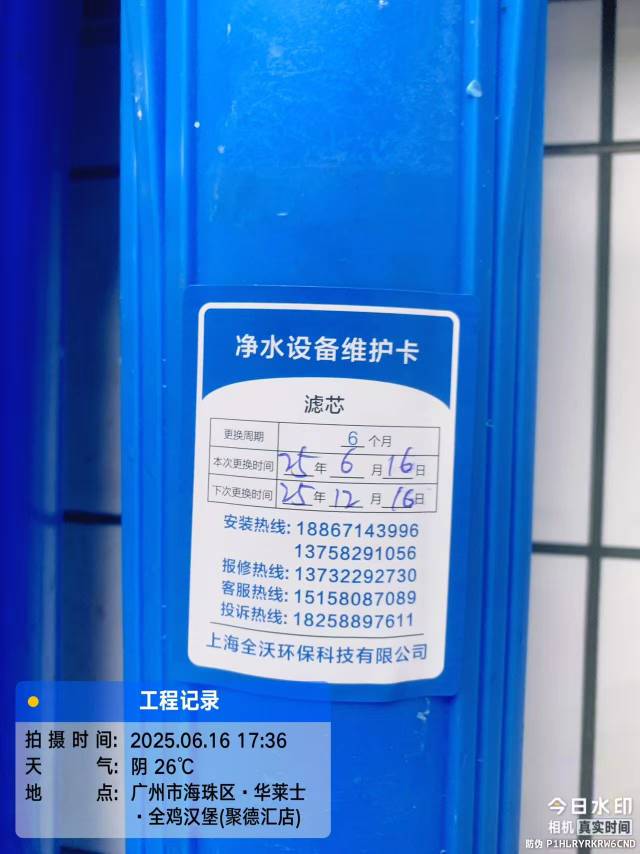 净水设备维护卡
滤芯
更换周期 6 个月
本次更换时间 25 年 6 月 16 日
下次更换时间 25 年 12 月 16 日
安装热线: 18867143996
13758291056
报修热线: 13732292730
客服热线: 15158087089
投诉热线: 18258897611
上海全沃环保科技有限公司
工程记录
拍摄时间: 2025.06.16 17:36
天气: 阴 26℃
地点: 广州市海珠区·华莱士
·全鸡汉堡(聚德汇店)
今日水印
相机 真实时间
防伪 P1HLRYRKRW6CND